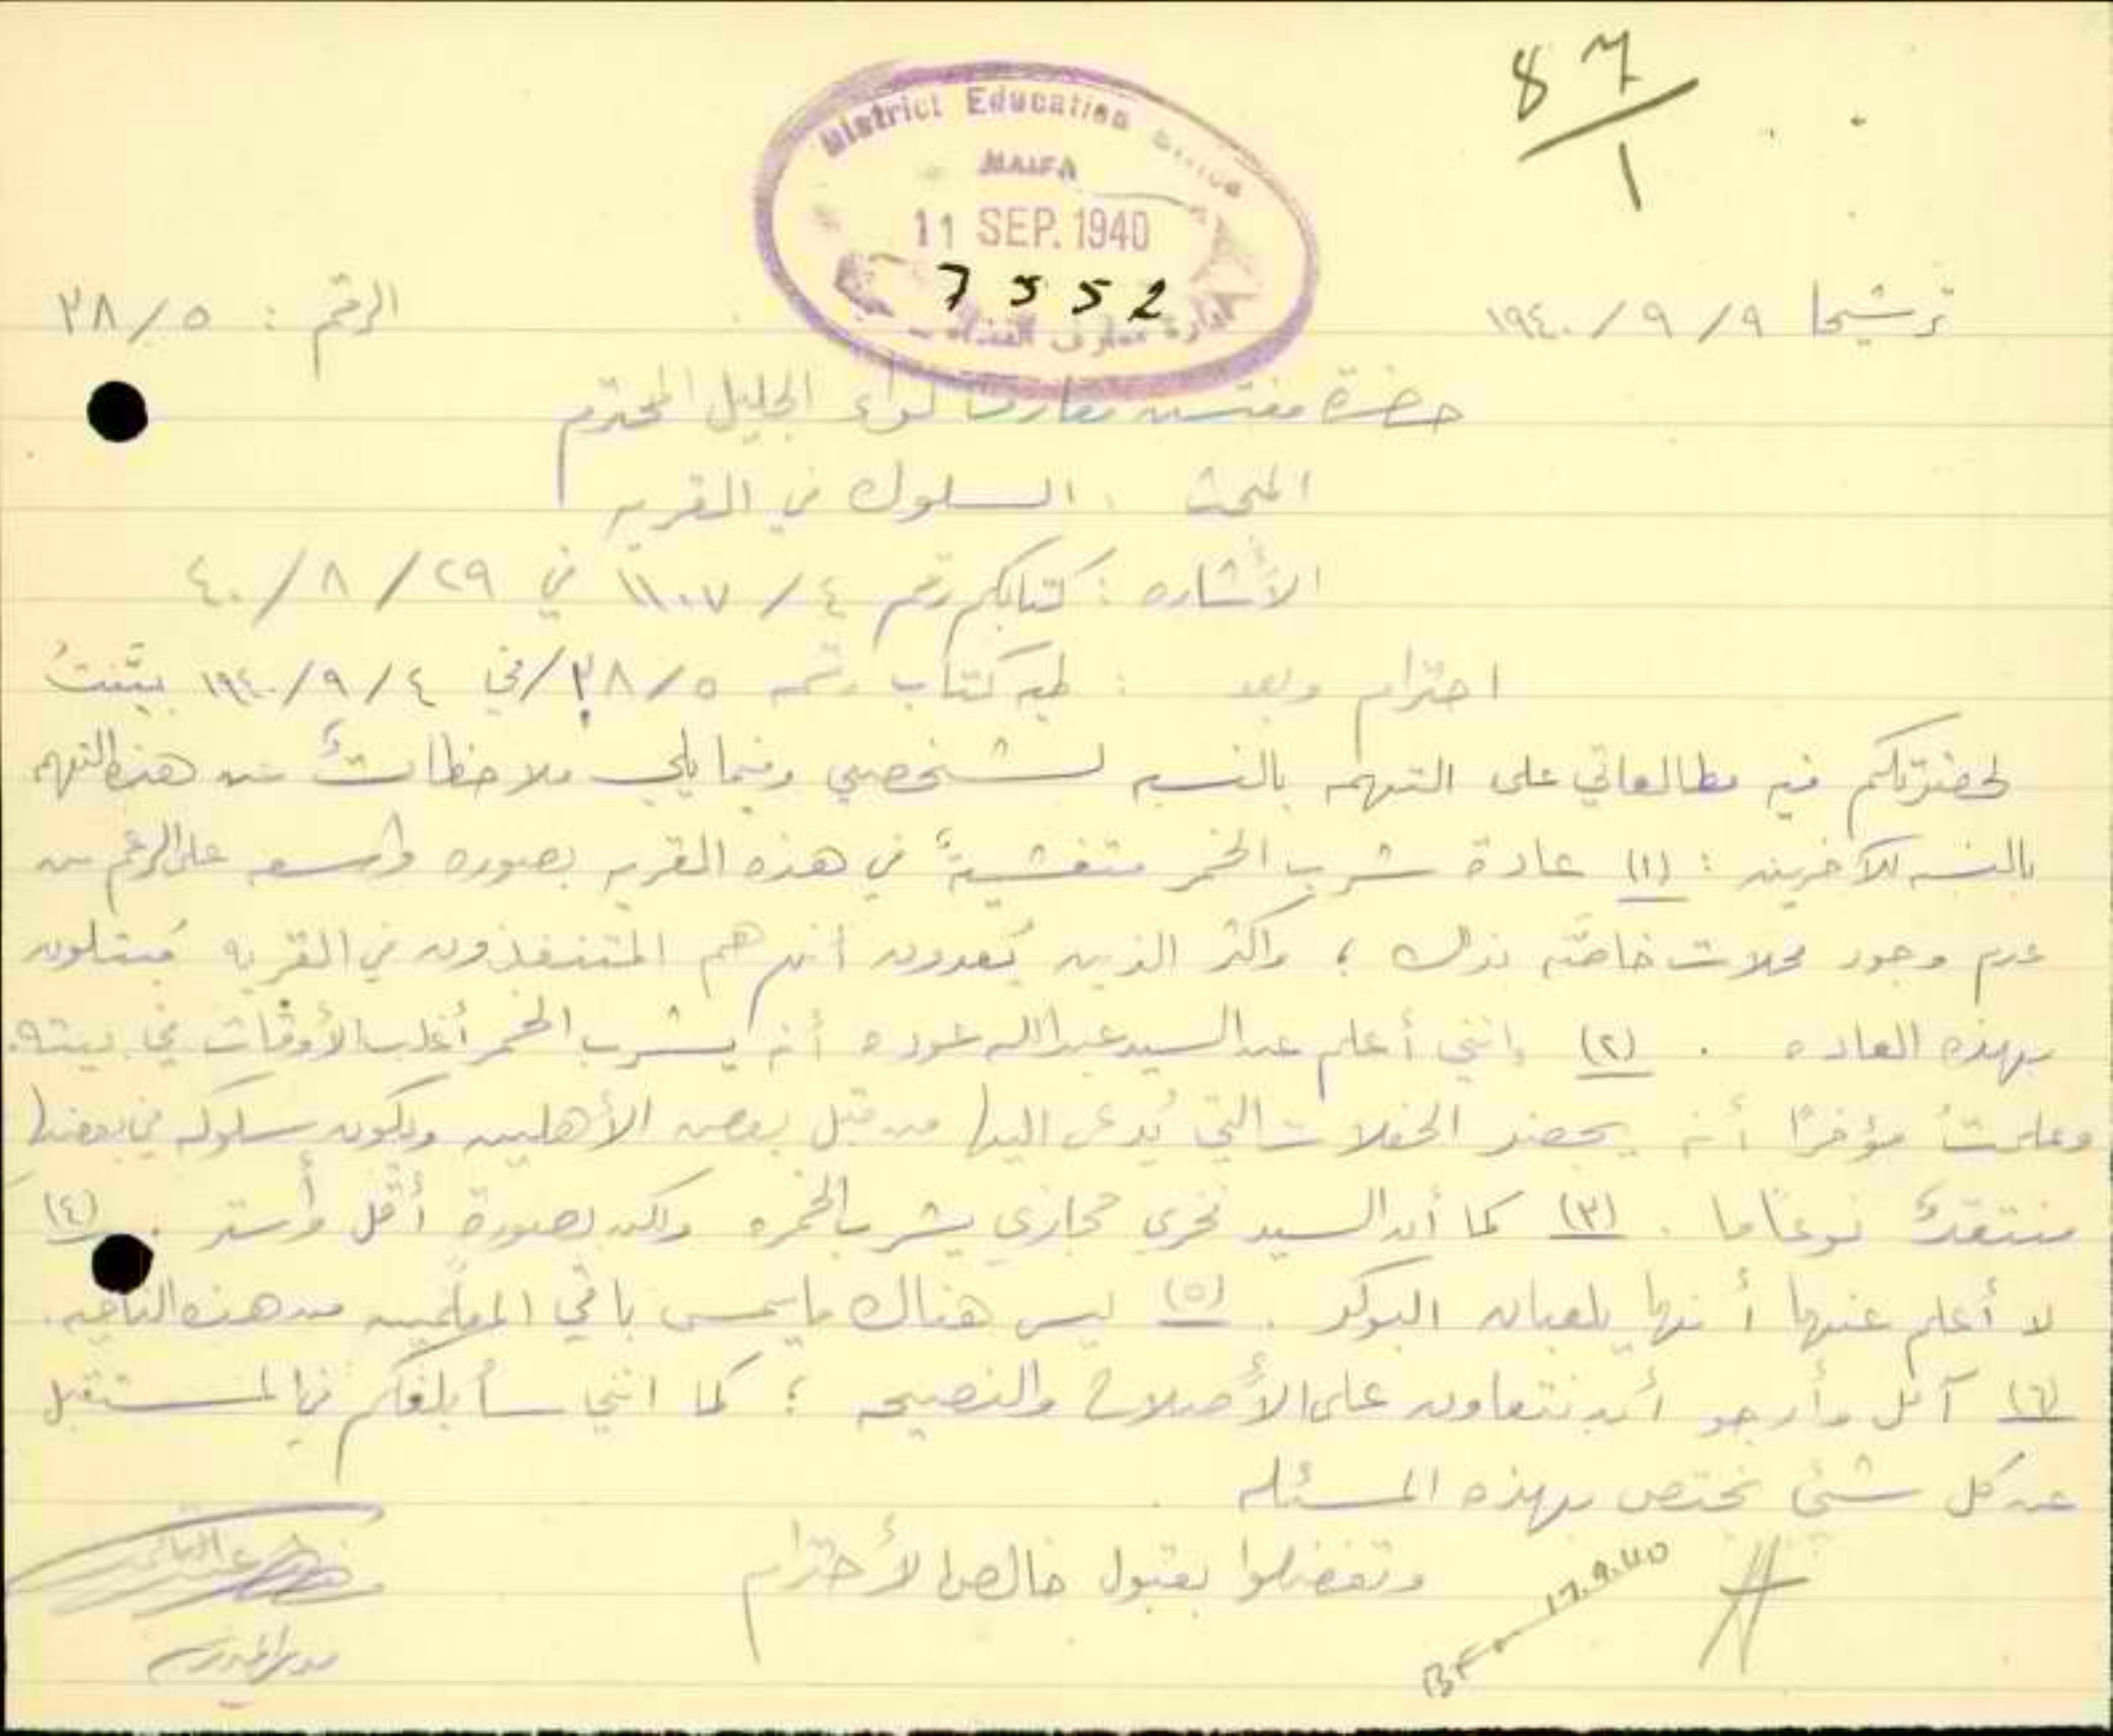 87
1
District Education Office
HAIFA
11 SEP. 1940
7552
ترشيحا ٩/٩/١٩٤٠ الرقم : ٣٨/٥
حضرة مفتش معارف لواء الجليل المحترم
المبحث : السلوك في القريه
الأشاره : كتابكم رقم ٤/١١٠٧ في ٢٩/٨/٤٠
احترام وبعد : طيه كتاب رقم ٣٨/٥/ في ٤/٩/١٩٤٠ بيّنتُ
لحضرتكم فيه مطالعاتي على التهمه بالنسبه لشخصي وفيما يلي ملاحظاتٌ عن هذه التهم
بالنسبه للآخرين : (١) عادة شرب الخمر متفشيةٌ في هذه القريه بصوره واسعه على الرغم من
عدم وجود محلات خاصّه بذلك ؛ واكثر الذين يُعدون أنهم هم المتنفذون في القريه مُبتلون
بهذه العاده . (٢) إنني أعلم عن السيد عبدالله عوده أنه يشرب الخمر أغلب الأوقات في بيته.
وعلمتُ مؤخرًا أنه يحضر الحفلات التي يُدعى اليها من قبل بعض الأهلين ويكون سلوكه في بعضها
منتقدٌ نوعًا ما . (٣) كما أن السيد فخري حجازي يشرب الخمره ولكن بصورةٍ أقل وأستر . (٤)
لا أعلم عنهما أنهما يلعبان البوكر . (٥) ليس هناك ما يمس باقي المعلمين من هذه الناحيه.
(٦) آمل وأرجو أن نتعاون على الأصلاح والنصيحه ؛ كما انني سأبلغكم في المستقبل
عن كل شئ يختص بهذه المسئله .
وتفضلوا بقبول خالص الأحترام
مدير المدرسه
BF 17.9.40